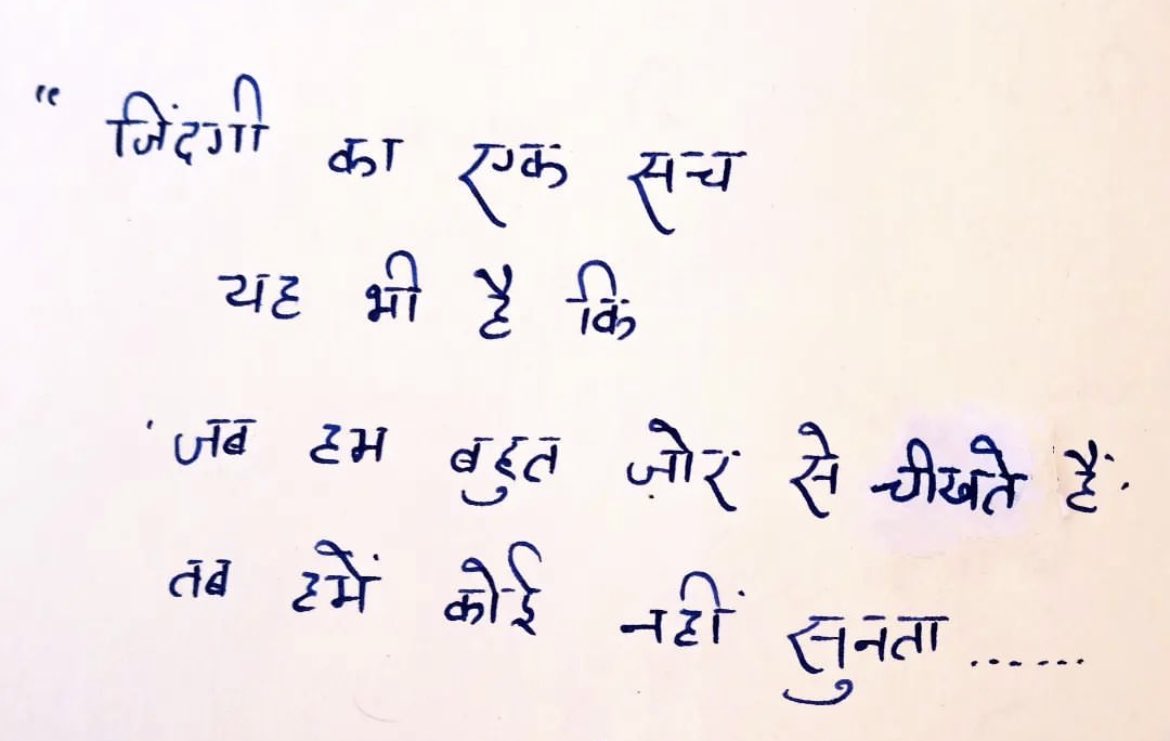 " जिंदगी का एक सच
यह भी है कि
' जब हम बहुत ज़ोर से चीखते हैं.
तब हमें कोई नहीं सुनता .......